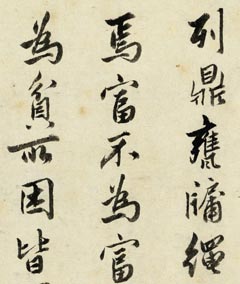 列鼎甕牖繩
焉富不為富
為貧所困皆